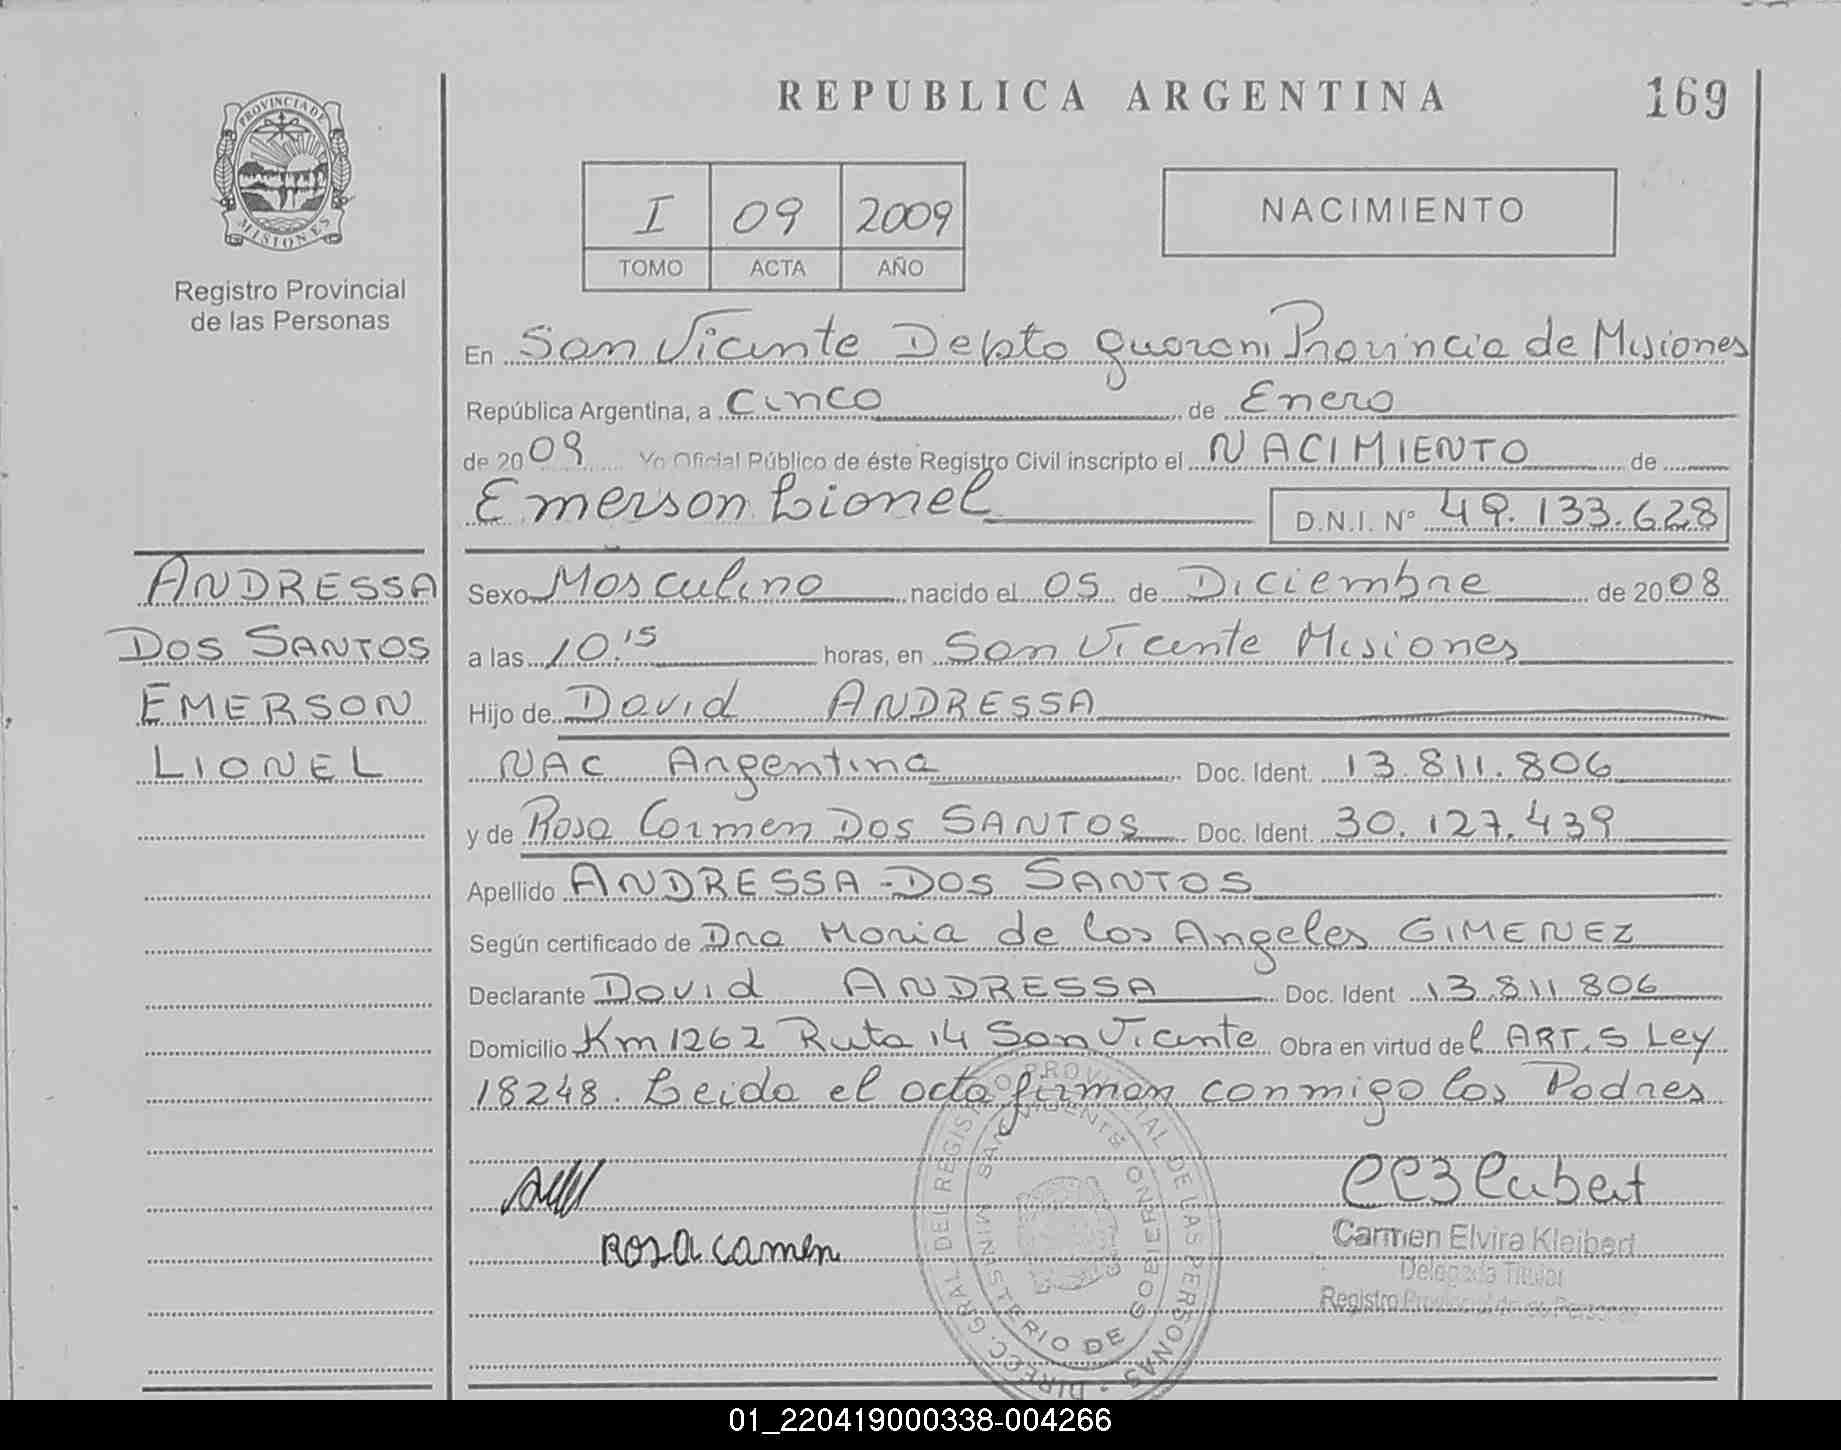 REPUBLICA ARGENTINA
169
PROVINCIA DE
MISIONES
Registro Provincial
de las Personas
I 09 2009
TOMO ACTA AÑO
NACIMIENTO
En San Vicente Depto Guarani Provincia de Misiones
República Argentina, a cinco de Enero
de 2009 Yo Oficial Público de éste Registro Civil inscripto el NACIMIENTO de
Emerson Lionel D.N.I. N° 49.133.628
ANDRESSA
DOS SANTOS
EMERSON
LIONEL
Sexo Masculino nacido el 05 de Diciembre de 2008
a las 10.15 horas, en San Vicente Misiones
Hijo de David ANDRESSA
NAC Argentina Doc. Ident. 13.811.806
y de Rosa Carmen Dos SANTOS Doc. Ident. 30.127.439
Apellido ANDRESSA - DOS SANTOS
Según certificado de Dra Maria de los Angeles GIMENEZ
Declarante David ANDRESSA Doc. Ident 13.811 806
Domicilio Km 1262 Ruta 14 San Vicente Obra en virtud del ART. 5 Ley
18248. Leida el acta firman conmigo los Padres
ROSA CARMEN
Carmen Elvira Kleibert
Delegada Titular
Registro Provincial de las Personas
DIRECC. GRAL. DEL REGISTRO PROVINCIAL DE LAS PERSONAS
MINISTERIO DE GOBIERNO
SAN VICENTE
01_220419000338-004266